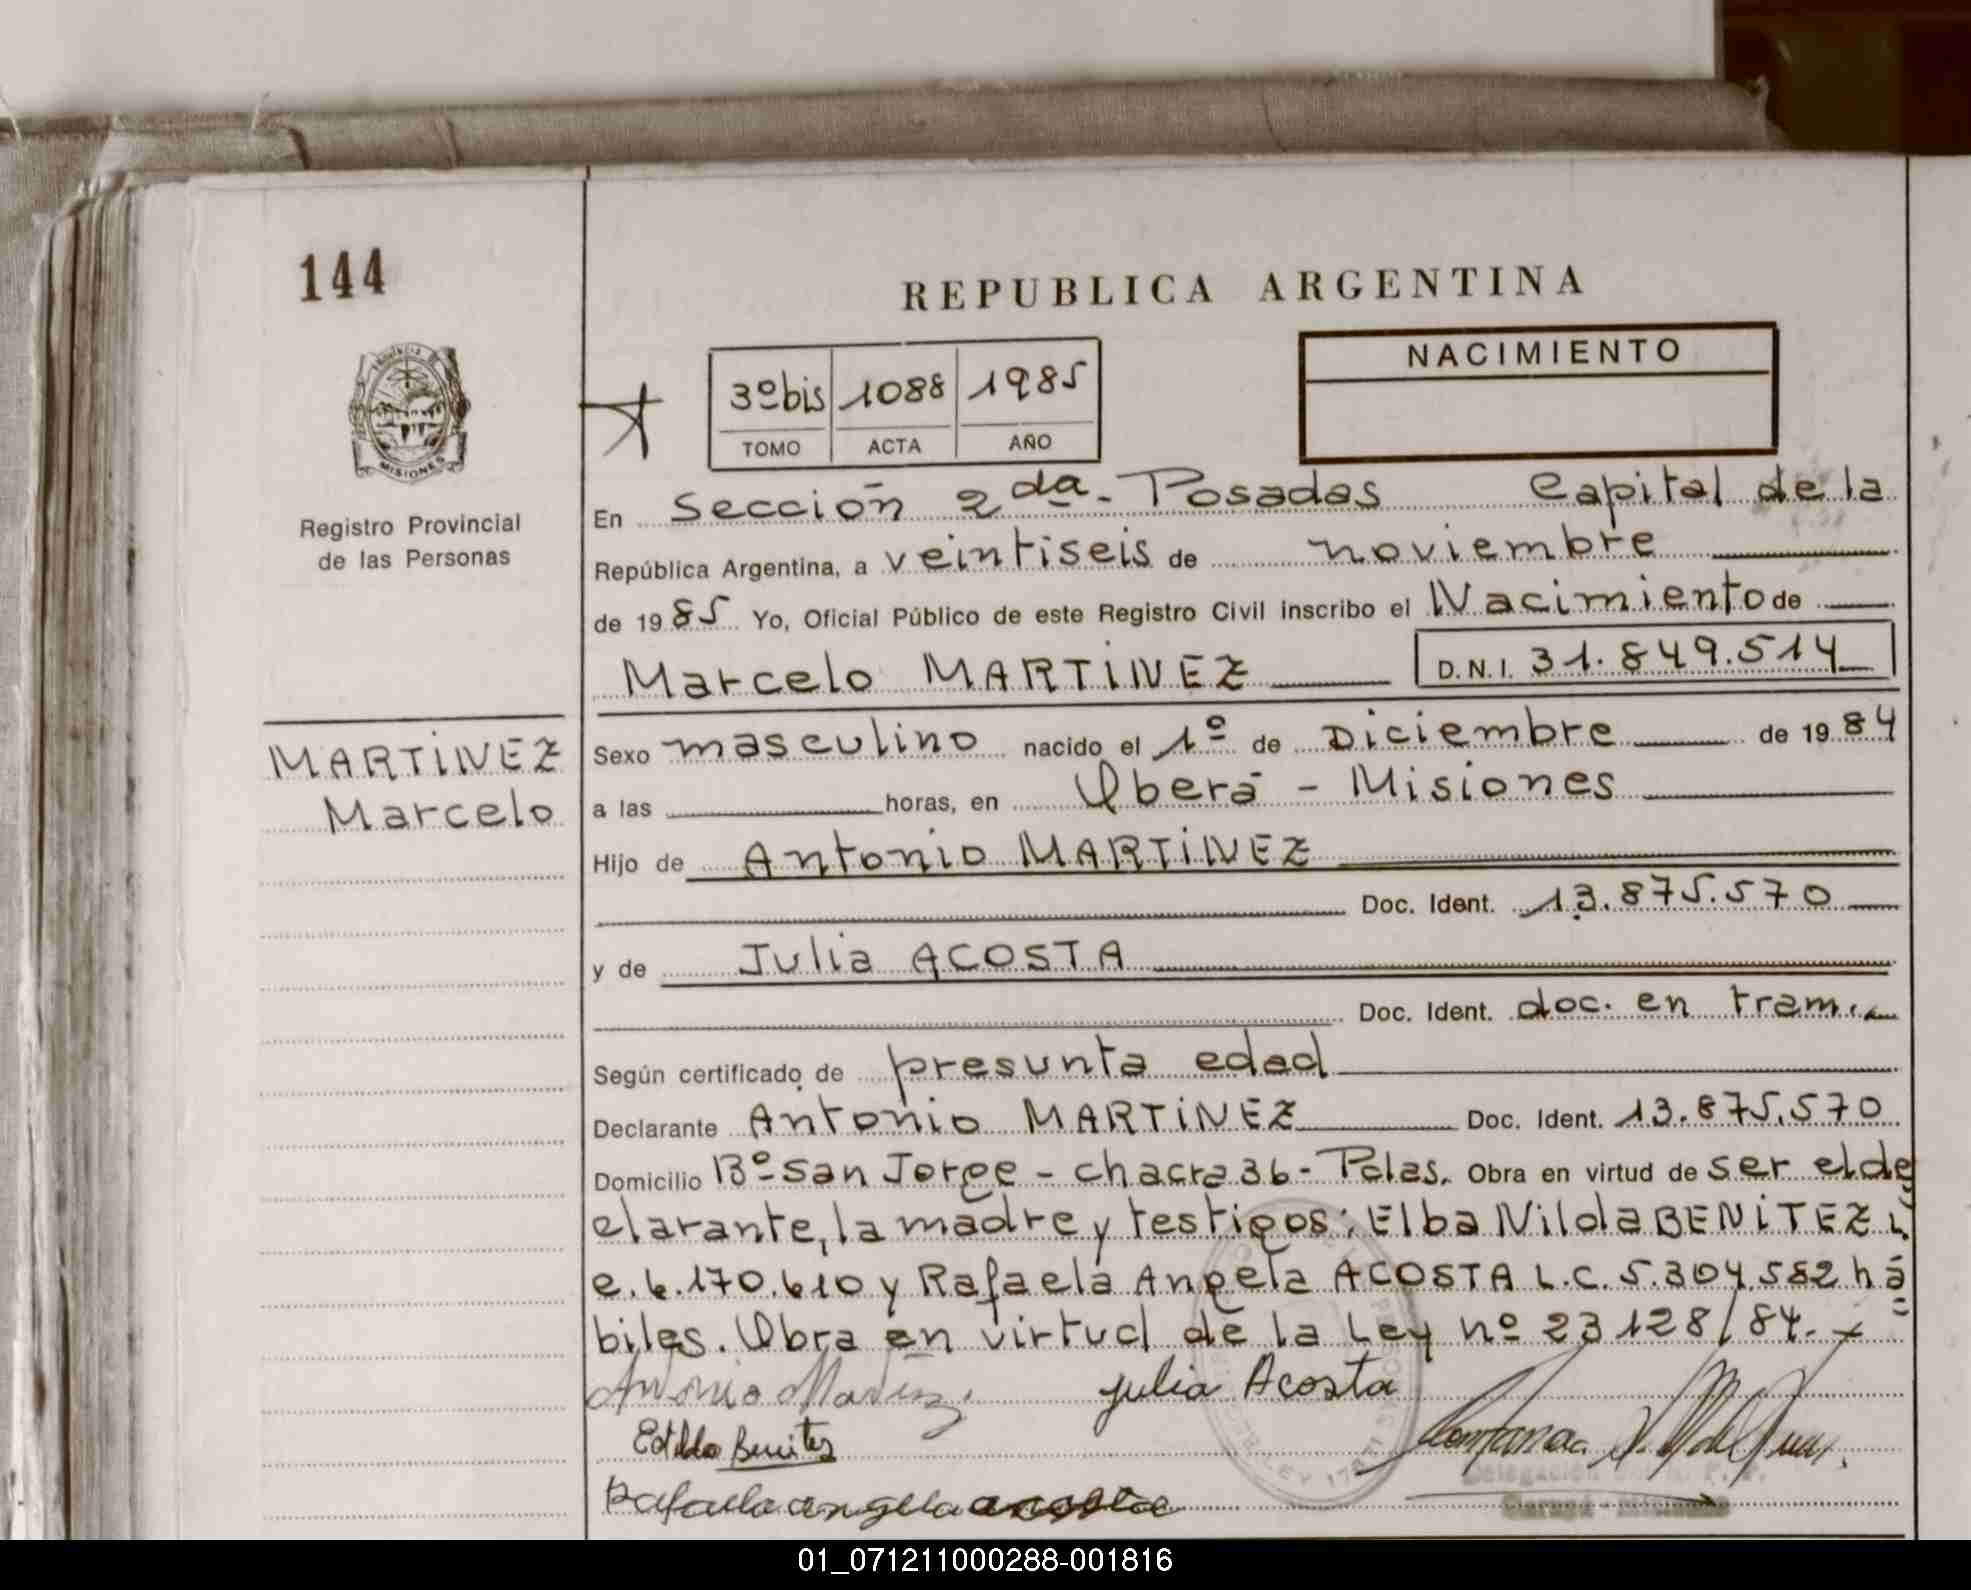 144
REPUBLICA ARGENTINA
NACIMIENTO
3º bis 1088 1985
TOMO ACTA AÑO
MISIONES
Registro Provincial
de las Personas
En Sección 2da. Posadas Capital de la
República Argentina, a veintiseis de noviembre
de 1985 Yo, Oficial Público de este Registro Civil inscribo el Nacimiento de
Marcelo MARTINEZ D.N.I. 31.849.514
MARTINEZ
Marcelo
Sexo masculino nacido el 1º de Diciembre de 1984
a las horas, en Oberá - Misiones
Hijo de Antonio MARTINEZ
Doc. Ident. 13.875.570
y de Julia ACOSTA
Doc. Ident. doc. en tram.
Según certificado de presunta edad
Declarante Antonio MARTINEZ Doc. Ident. 13.875.570
Domicilio Bº San Jorge - chacra 36 - Pdas. Obra en virtud de ser el de
clarante, la madre y testigos: Elba Nilda BENITEZ L.
c. 6.170.610 y Rafaela Angela ACOSTA L.C. 5.304.582 há
biles. Obra en virtud de la Ley nº 23128/84.-
Antonio Martinez Julia Acosta
Benitez
Rafaela angela acosta
Delegación
01_071211000288-001816